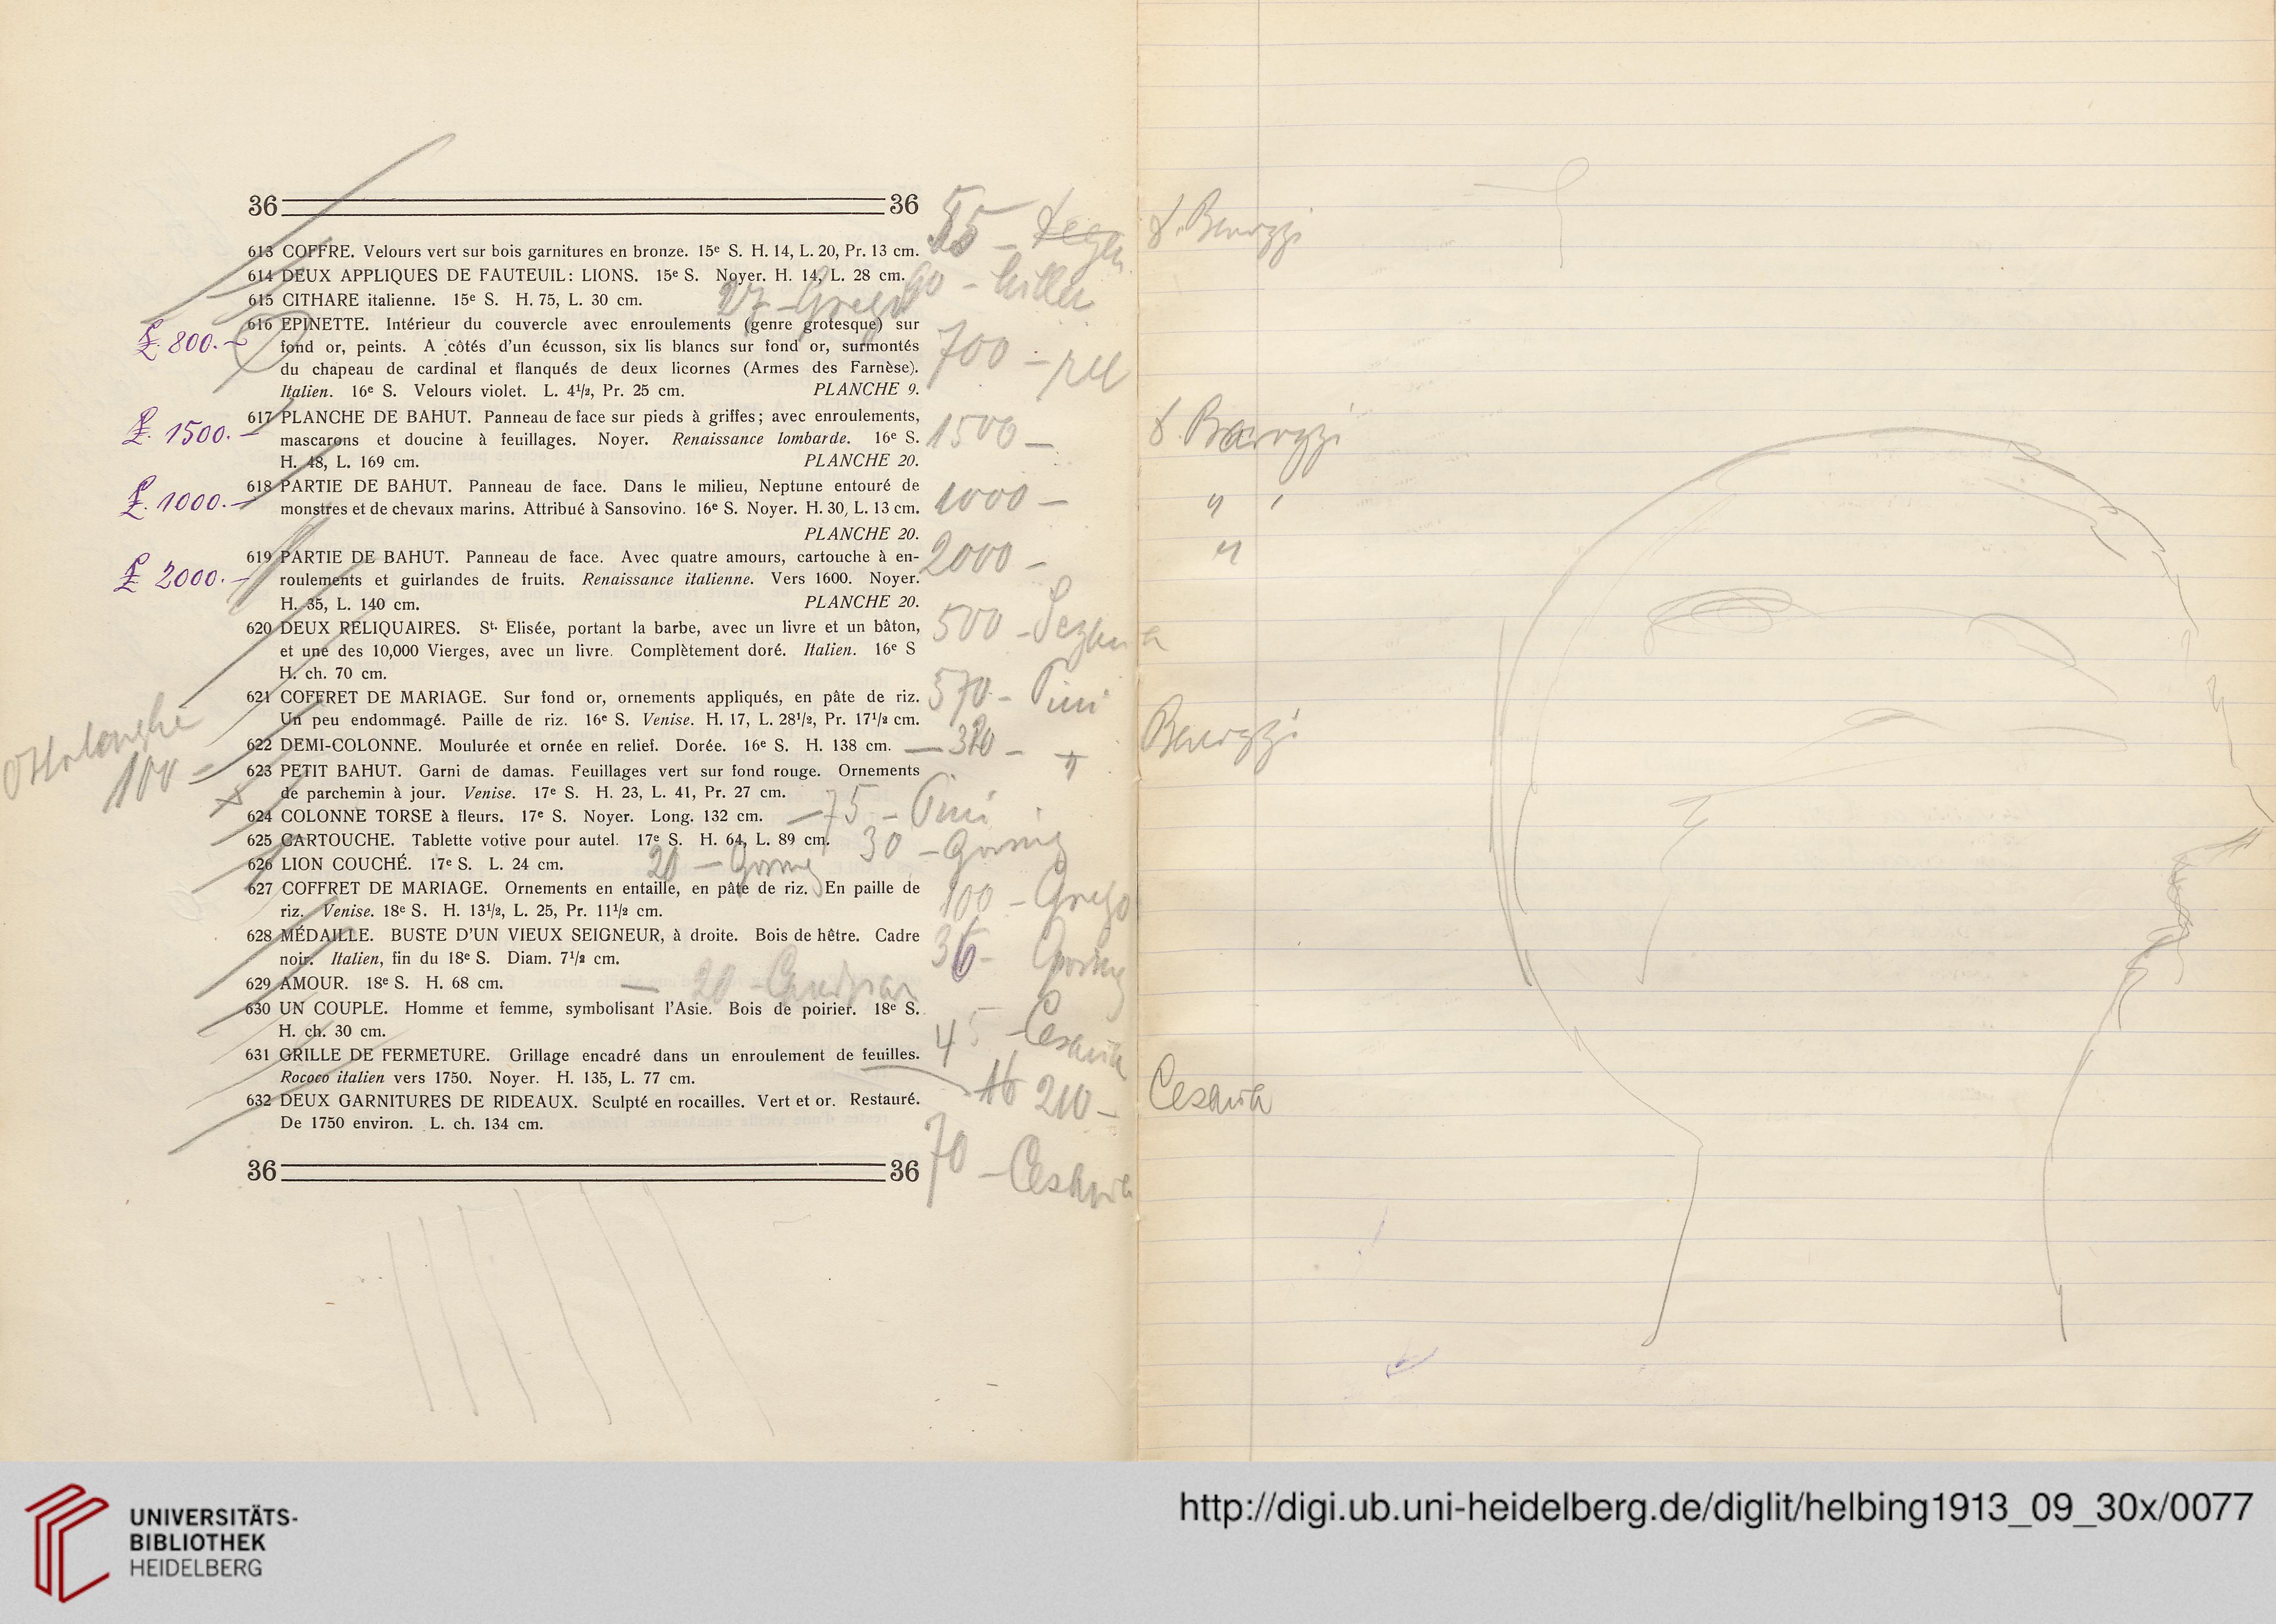 36 36
55 - S. Barozzi
613 COFFRE. Velours vert sur bois garnitures en bronze. 15e S. H. 14, L. 20, Pr. 13 cm.
614 DEUX APPLIQUES DE FAUTEUIL: LIONS. 15e S. Noyer. H. 14, L. 28 cm. 90 -
615 CITHARE italienne. 15e S. H. 75, L. 30 cm. 27 - Grego
£. 800.- 616 EPINETTE. Intérieur du couvercle avec enroulements (genre grotesque) sur
fond or, peints. A côtés d'un écusson, six lis blancs sur fond or, surmontés 700 -
du chapeau de cardinal et flanqués de deux licornes (Armes des Farnèse).
Italien. 16e S. Velours violet. L. 4½, Pr. 25 cm. PLANCHE 9.
£. 1500.- 617 PLANCHE DE BAHUT. Panneau de face sur pieds à griffes; avec enroulements,
mascarons et doucine à feuillages. Noyer. Renaissance lombarde. 16e S. 1500 - S. Barozzi
H. 48, L. 169 cm. PLANCHE 20.
£. 1000.- 618 PARTIE DE BAHUT. Panneau de face. Dans le milieu, Neptune entouré de
monstres et de chevaux marins. Attribué à Sansovino. 16e S. Noyer. H. 30, L. 13 cm. 1000 - "
PLANCHE 20.
£ 2000.- 619 PARTIE DE BAHUT. Panneau de face. Avec quatre amours, cartouche à en- 2000 - "
roulements et guirlandes de fruits. Renaissance italienne. Vers 1600. Noyer.
H. 35, L. 140 cm. PLANCHE 20.
620 DEUX RELIQUAIRES. St. Elisée, portant la barbe, avec un livre et un bâton, 500 -
et une des 10,000 Vierges, avec un livre. Complètement doré. Italien. 16e S
H. ch. 70 cm.
621 COFFRET DE MARIAGE. Sur fond or, ornements appliqués, en pâte de riz. 570 - Pini
Un peu endommagé. Paille de riz. 16e S. Venise. H. 17, L. 28½, Pr. 17½ cm.
622 DEMI-COLONNE. Moulurée et ornée en relief. Dorée. 16e S. H. 138 cm. - 320 - " Barozzi
Ottolenghi
100 - 623 PETIT BAHUT. Garni de damas. Feuillages vert sur fond rouge. Ornements
de parchemin à jour. Venise. 17e S. H. 23, L. 41, Pr. 27 cm.
624 COLONNE TORSE à fleurs. 17e S. Noyer. Long. 132 cm. - 75 - Pini
625 CARTOUCHE. Tablette votive pour autel. 17e S. H. 64, L. 89 cm. 30 -
626 LION COUCHÉ. 17e S. L. 24 cm. 20 -
627 COFFRET DE MARIAGE. Ornements en entaille, en pâte de riz. En paille de 100 - Grego
riz. Venise. 18e S. H. 13½, L. 25, Pr. 11½ cm.
628 MÉDAILLE. BUSTE D'UN VIEUX SEIGNEUR, à droite. Bois de hêtre. Cadre 36 -
noir. Italien, fin du 18e S. Diam. 7½ cm.
629 AMOUR. 18e S. H. 68 cm. - 20 -
630 UN COUPLE. Homme et femme, symbolisant l'Asie. Bois de poirier. 18e S. 45 -
H. ch. 30 cm.
631 GRILLE DE FERMETURE. Grillage encadré dans un enroulement de feuilles.
Rococo italien vers 1750. Noyer. H. 135, L. 77 cm. 210 -
632 DEUX GARNITURES DE RIDEAUX. Sculpté en rocailles. Vert et or. Restauré.
De 1750 environ. L. ch. 134 cm.
36 36 70 -
UNIVERSITÄTS-
BIBLIOTHEK
HEIDELBERG
http://digi.ub.uni-heidelberg.de/diglit/helbing1913_09_30x/0077